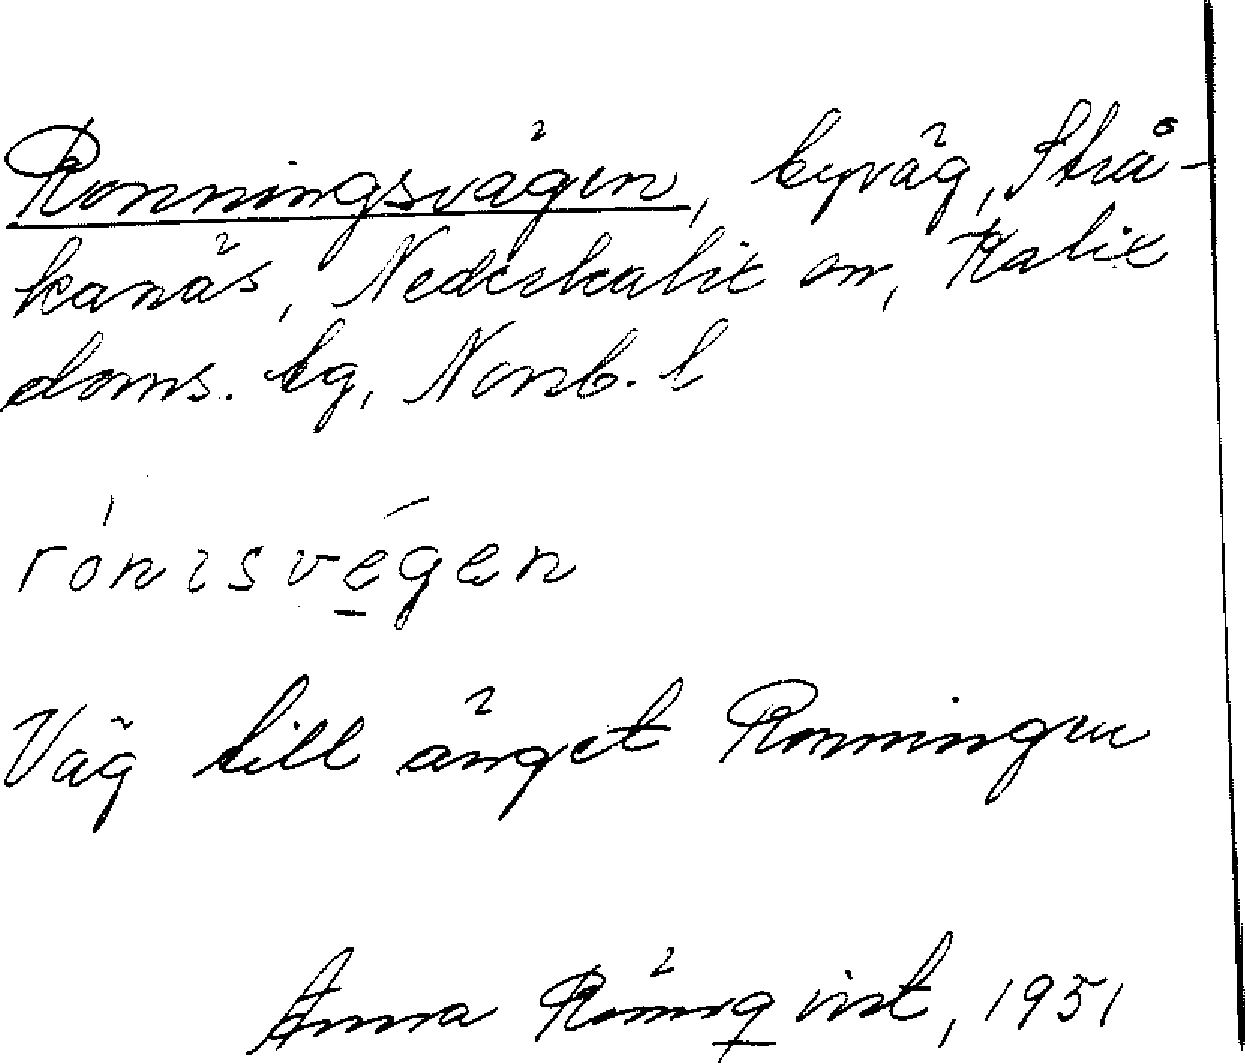 Ronningsvägen, byväg, Strå-
kanäs, Nederkalix sn, Kalix
doms. lg, Norrb. l
rónisvégen
Väg till änget Ronningen
Anna Römqvist, 1951